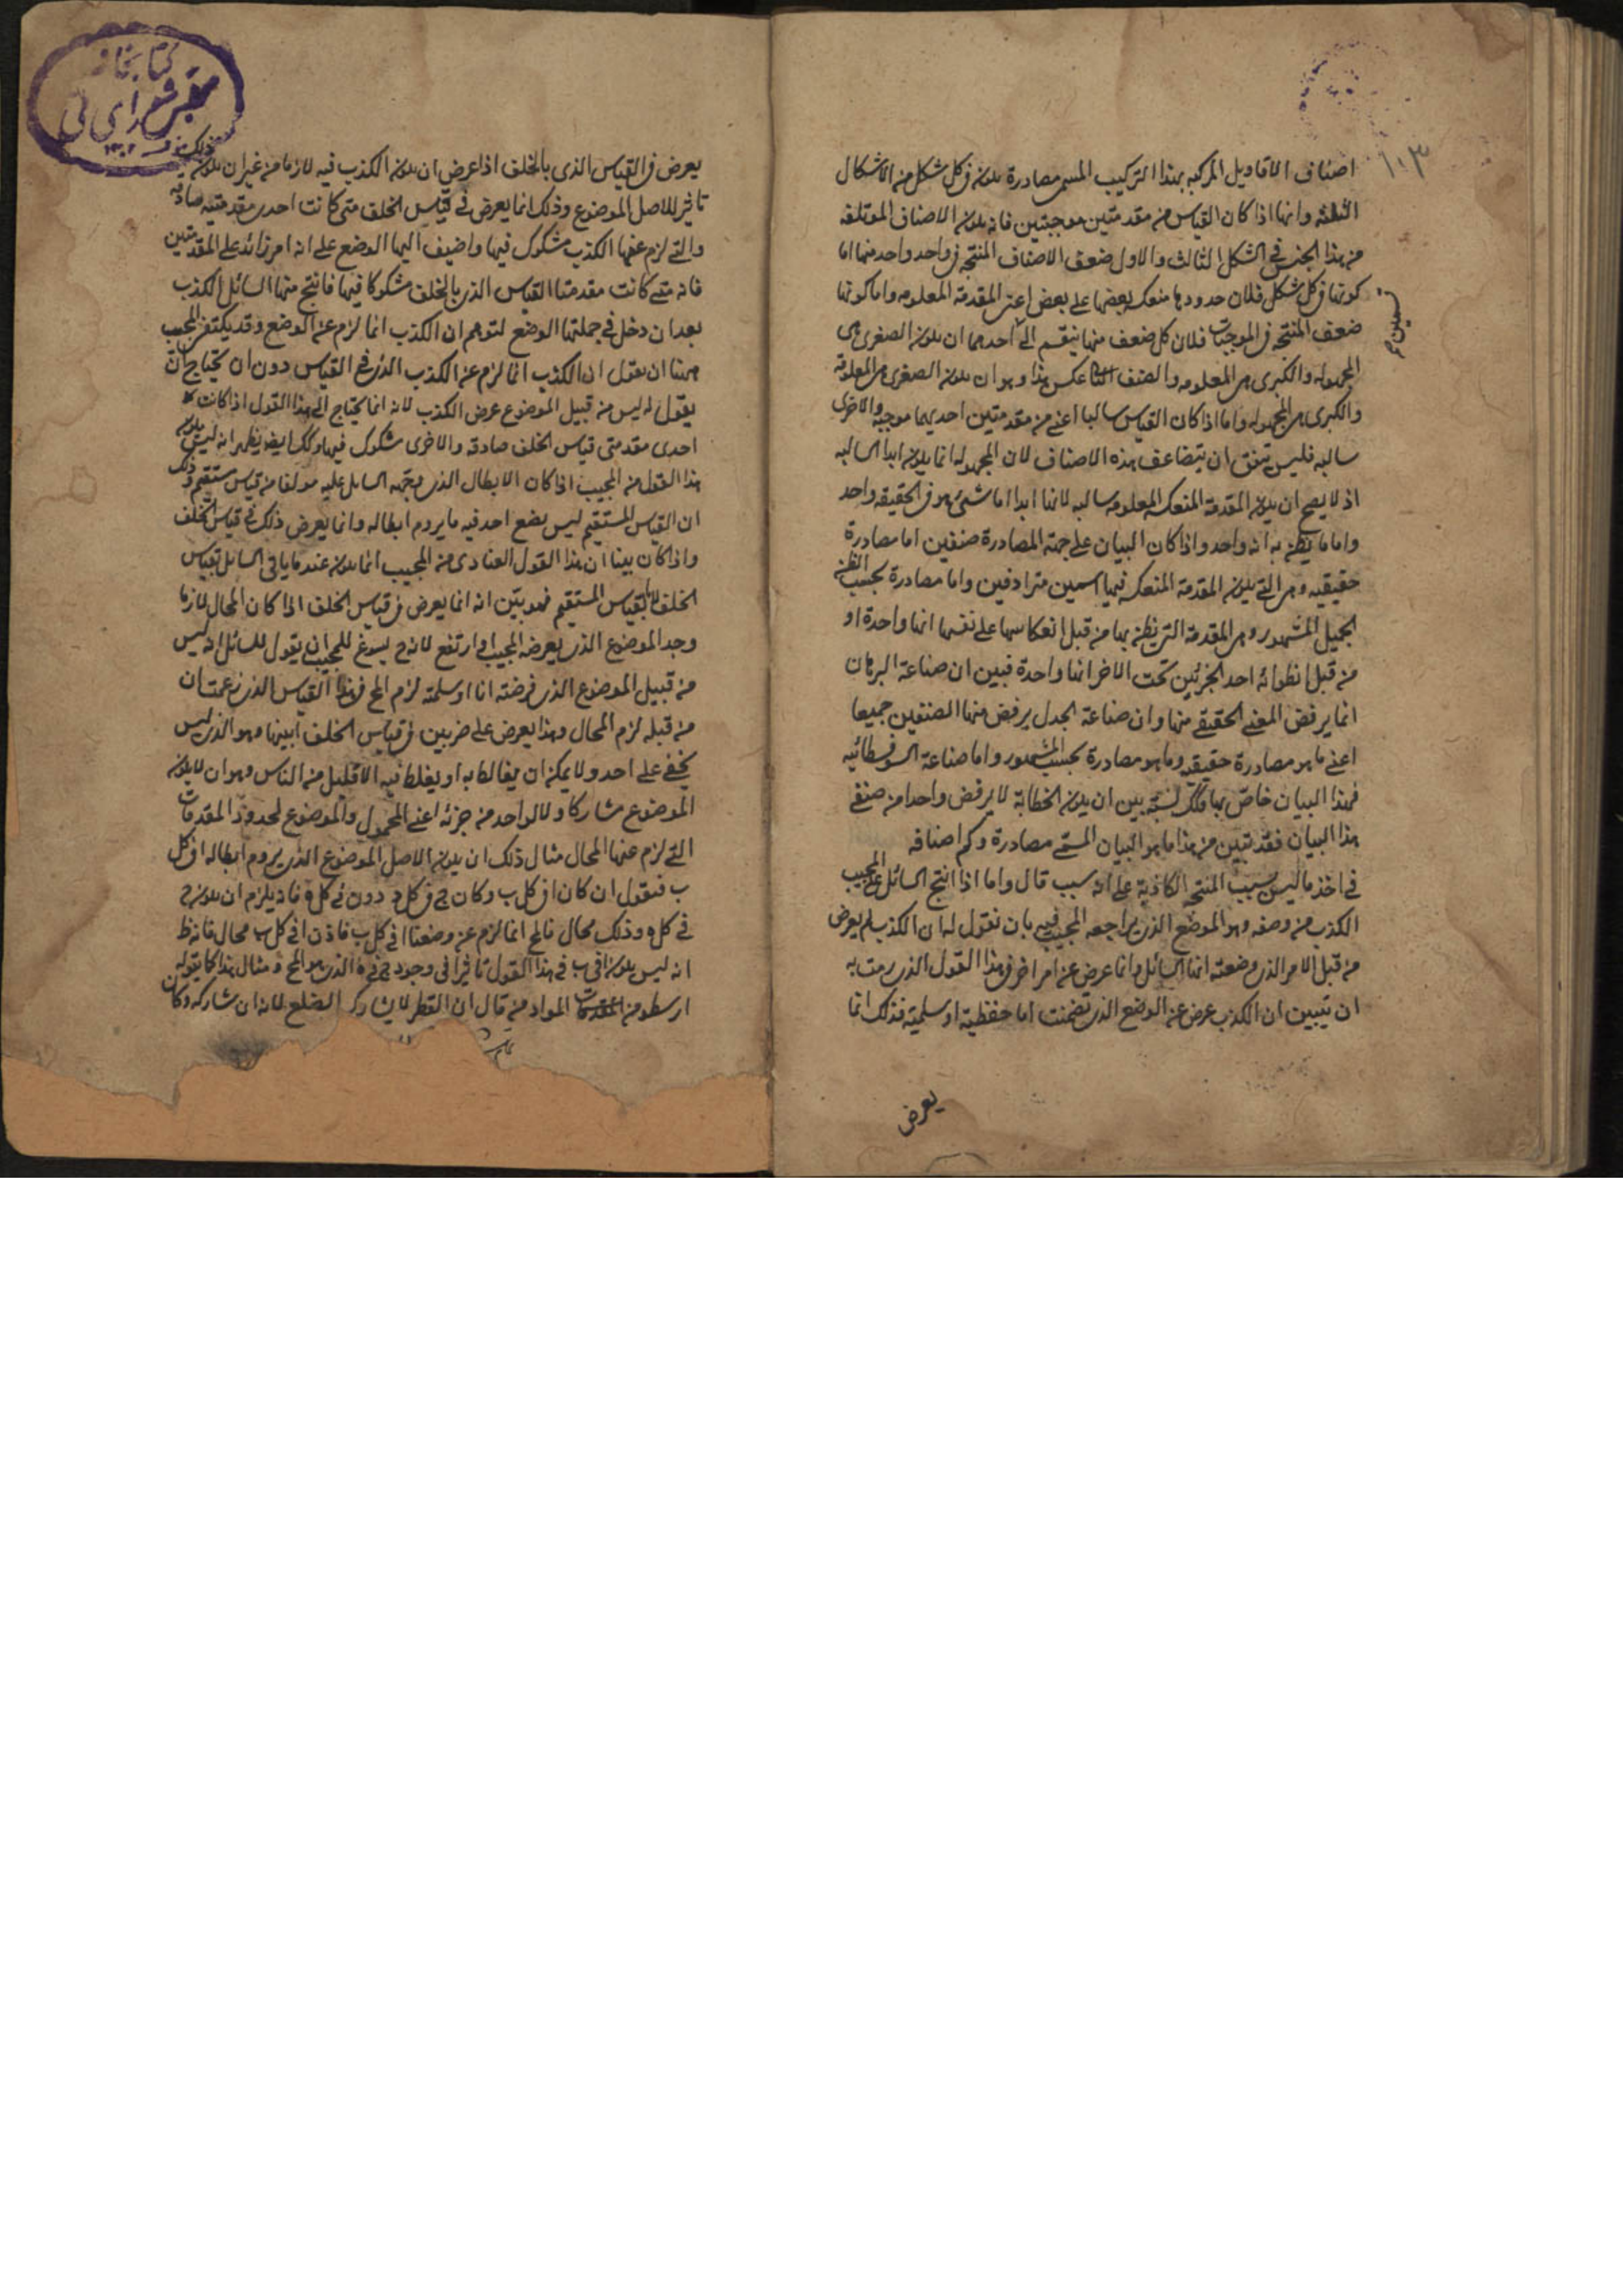 ١٠٣
اصناف الاقاويل المركبه بهذا التركيب المسمى مصادرة يكون فى كل شكل من الاشكال
الثلثه وانها اذا كان القياس من مقدمتين موجبتين فانه يكون الاصناف الموتلفه
من هذا الجنس فى الشكل الثالث والاول ضعف الاصناف المنتجه فى واحد واحد منها اما
كونها فى كل شكل فلان حدودها منعكسه بعضها على بعض اعنى المقدمة المعلومه واما كونها
ضعف المنتجه فى الموجبات فلان كل ضعف منها ينقسم الى احدهما ان يكون الصغرى هى
المجهوله والكبرى هى المعلومه والصنف الثانى عكس هذا وهو ان يكون الصغرى هى المعلومة
والكبرى هى المجهوله واما اذا كان القياس سالبا اعنى من مقدمتين احديهما موجبة والاخرى
سالبه فليس يتفق ان يتضاعف هذه الاصناف لان المجهوله انما يكون ابدا السالبه
اذ لا يصح ان يكون المقدمة المنعكسه المعلومه سالبه لانها ابدا اما شئ هو فى الحقيقه واحد
واما ما يظن به انه واحد واذا كان البيان على جهة المصادرة صنفين اما مصادرة
حقيقيه وهى التى يكون المقدمة المنعكسه فيها اسمين مترادفين واما مصادرة بحسب الظن
الجميل المشهور وهى المقدمة التى يظن بها من قبل انعكاسها على نفسها انها واحدة او
من قبل انطوائه احد الجزئين تحت الاخر انها واحدة فبين ان صناعة البرهان
انما يرفض المعنى الحقيقى منها وان صناعة الجدل يرفض منها الصنفين جميعا
اعنى ما هو مصادرة حقيقيه وما هو مصادرة بحسب المشهور واما صناعة السوفسطائيه
فهذا البيان خاص بها وكك نسبته بين ان يكون الخطابة لا يرفض واحدا من صنفى
هذا البيان فقد تبين من هذا ما هو البيان المسمى مصادرة وكم اصنافه
فى اخذ ما ليس بسبب المنتجه الكاذبة على انه سبب قال واما اذا انتج السائل على المجيب
الكذب من وصفه وهو الموضع الذى يراجعه المجيب فيه بان نقول له ان الكذب لم يعرض
من قبل الامر الذى وضعته ايها السائل وانما عرض عن امر اخر فى هذا القول الذى رمت به
ان تبين ان الكذب عرض عن الوضع الذى تضمنت اما حفظية او سلمية فذلك انما
يعرض
يعرض فى القياس الذى بالخلف اذا عرض ان يكون الكذب فيه لازما من غير ان يكون
تاثير للاصل الموضوع وذلك انما يعرض فى قياس الخلف متى كانت احدى مقدمتيه صادقه
والتى لزم عنها الكذب مشكوك فيها واضيف اليها الوضع على انه امر زائد على المقدمتين
فانه متى كانت مقدمتا القياس الذى بالخلف مشكوكا فيها فانتج منها السائل الكذب
بعد ان دخل فى جملتها الوضع لتوهم ان الكذب انما لزم عن الوضع وقد يكتفى المجيب
ههنا ان يقول ان الكذب انما لزم عن الكذب الذى فى القياس دون ان يحتاج ان
يقول انه ليس من قبيل الموضوع عرض الكذب لانه انما يحتاج الى هذا القول اذا كانت
احدى مقدمتى قياس الخلف صادقه والاخرى مشكوك فيها وكك ايضا يظهر انه ليس يكون
هذا القول من المجيب اذا كان الابطال الذى وجهه السايل عليه مولفا من قياس مستقيم وذلك
ان القياس المستقيم ليس يضع احد فيه ما يروم ابطاله وانما يعرض ذلك فى قياس الخلف
واذا كان بينا ان هذا القول العنادى من المجيب انما يكون عند ما ياتى السايل بقياس
الخلف لا بالقياس المستقيم فهو بيّن انه انما يعرض فى قياس الخلف اذا كان المحال لازما
وجد الموضوع الذى يعرضه المجيب او ارتفع لانه ح يسوغ للمجيب ان يقول للسائل انه ليس
من قبيل الموضوع الذى فرضته انا او سلمته لزم المح فى هذا القياس الذى زعمت ان
من قبله لزم المحال وهذا يعرض على ضربين فى قياس الخلف ابينها وهو الذى ليس
يخفى على احد ولا يمكن ان يغالط به او يغلط فيه الا قليل من الناس وهو ان لا يكون
الموضوع مشاركا ولا لواحد من جزئه اعنى المحمول والموضوع لحدود المقدمات
التى لزم عنها المحال مثال ذلك ان يكون الاصل الموضوع الذى يروم ابطاله ا فى كل
ب فنقول ان كان ا فى كل ب وكان ج فى كل د ود فى كل ه فانه يلزم ان يكون ج
فى كل ه وذلك محال فالمح انما لزم عن وضعنا ا فى كل ب فاذن ا فى كل ب محال فانه ظ
انه ليس يكون ا فى ب فى هذا القول تاثيرا فى وجود ج فى ه الذى هو المح ومثال هذا كما يقوله
ارسطو من المقدمات المواد من قال ان القطر لا يشارك الضلع لانه ان شاركه وكان